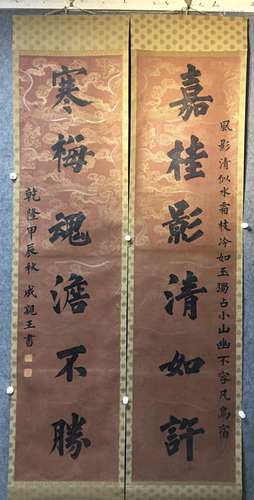 風影清似水霜枝冷如玉獨占小山幽不容凡鳥宿
嘉桂影清如許
寒梅魂澹不勝
乾隆甲辰秋 成親王書